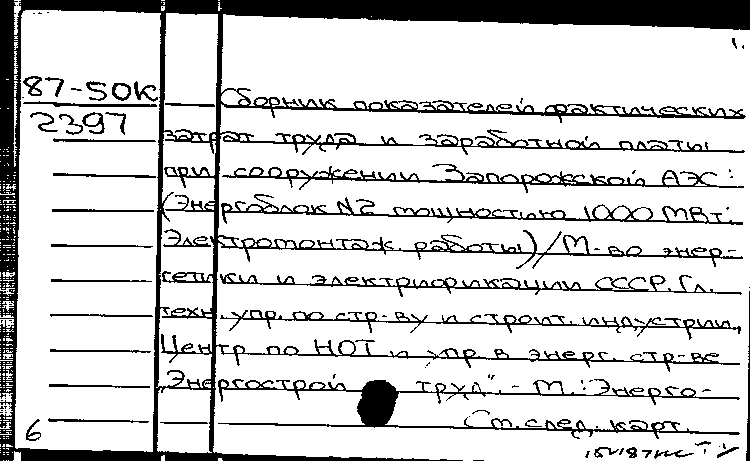 1.
87-50К
2397
Сборник показателей фактических
затрат труда и заработной платы
при сооружении Запорожской АЭС:
(Энергоблок №2 мощностью 1000 МВт:
Электромонтаж. работы) / М-во энер-
гетики и электрификации СССР. Гл.
техн. упр. по стр-ву и строит. индустрии,
Центр по НОТ и упр в энерг. стр-ве
„Энергострой труд". - М.: Энерго-
См. след. карт.
6